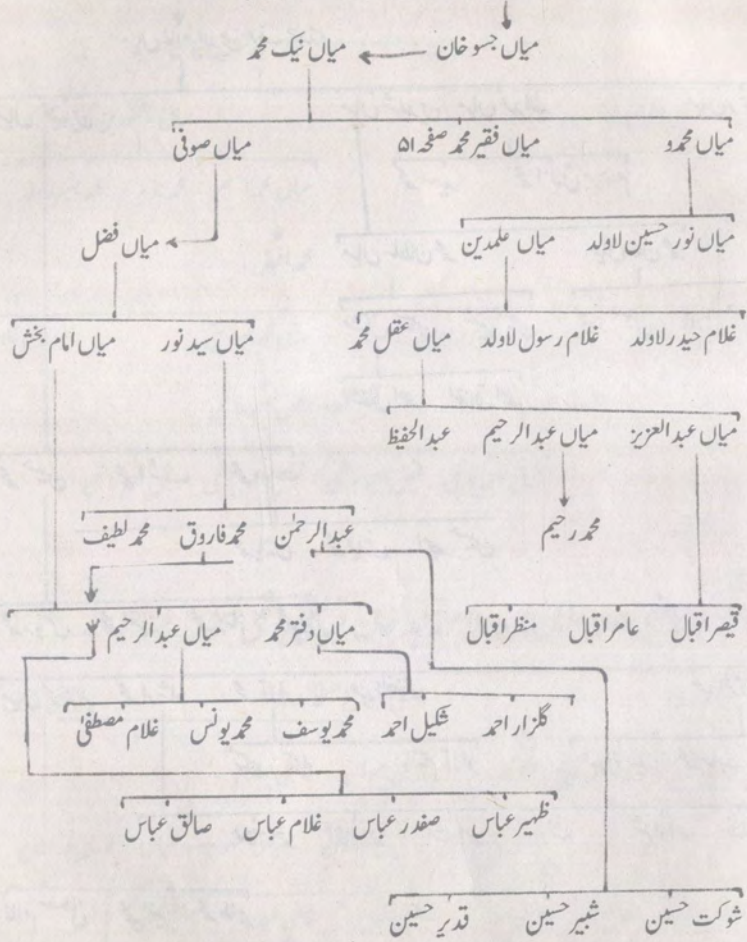 میاں جسو خان میاں نیک محمد
میاں محمدو میاں فقیر محمد صفحہ ۵۱ میاں صوفی
میاں نور حسین لاولد میاں علمدین میاں فضل
غلام حیدر لاولد غلام رسول لاولد میاں عقل محمد میاں سید نور میاں امام بخش
میاں عبدالعزیز میاں عبدالرحیم عبدالحفیظ
محمد رحیم عبدالرحمٰن محمد فاروق محمد لطیف
قیصر اقبال عامر اقبال منظر اقبال میاں دفتر محمد میاں عبدالرحیم
گلزار احمد شکیل احمد محمد یوسف محمد یونس غلام مصطفیٰ
ظہیر عباس صفدر عباس غلام عباس صالق عباس
شوکت حسین شبیر حسین قدیر حسین